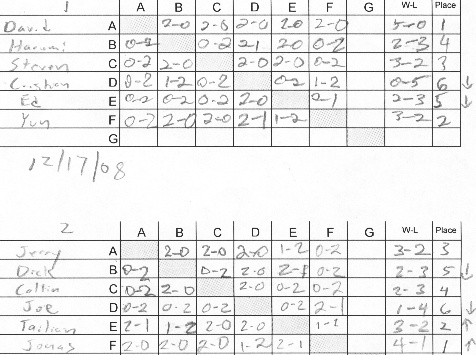 1 A B C D E F G W-L Place
David A 2-0 2-0 2-0 2-0 2-0 5-0 1
Harumi B 0-2 0-2 2-1 2-0 0-2 2-3 4
Steven C 0-2 2-0 2-0 2-0 0-2 3-2 3
D 0-2 1-2 0-2 0-2 1-2 0-5 6 ↓
Ed E 0-2 0-2 0-2 2-0 2-1 2-3 5 ↓
Yun F 0-2 2-0 2-0 2-1 1-2 3-2 2
G
12/17/08
2 A B C D E F G W-L Place
Jerry A 2-0 2-0 2-0 1-2 0-2 3-2 3
Dick B 0-2 0-2 2-0 2-1 0-2 2-3 5 ↓
Collin C 0-2 2-0 2-0 0-2 0-2 2-3 4
Joe D 0-2 0-2 0-2 0-2 2-1 1-4 6 ↓
Tailian E 2-1 1-2 2-0 2-0 1-2 3-2 2 ↑
Jonas F 2-0 2-0 2-0 1-2 2-1 4-1 1